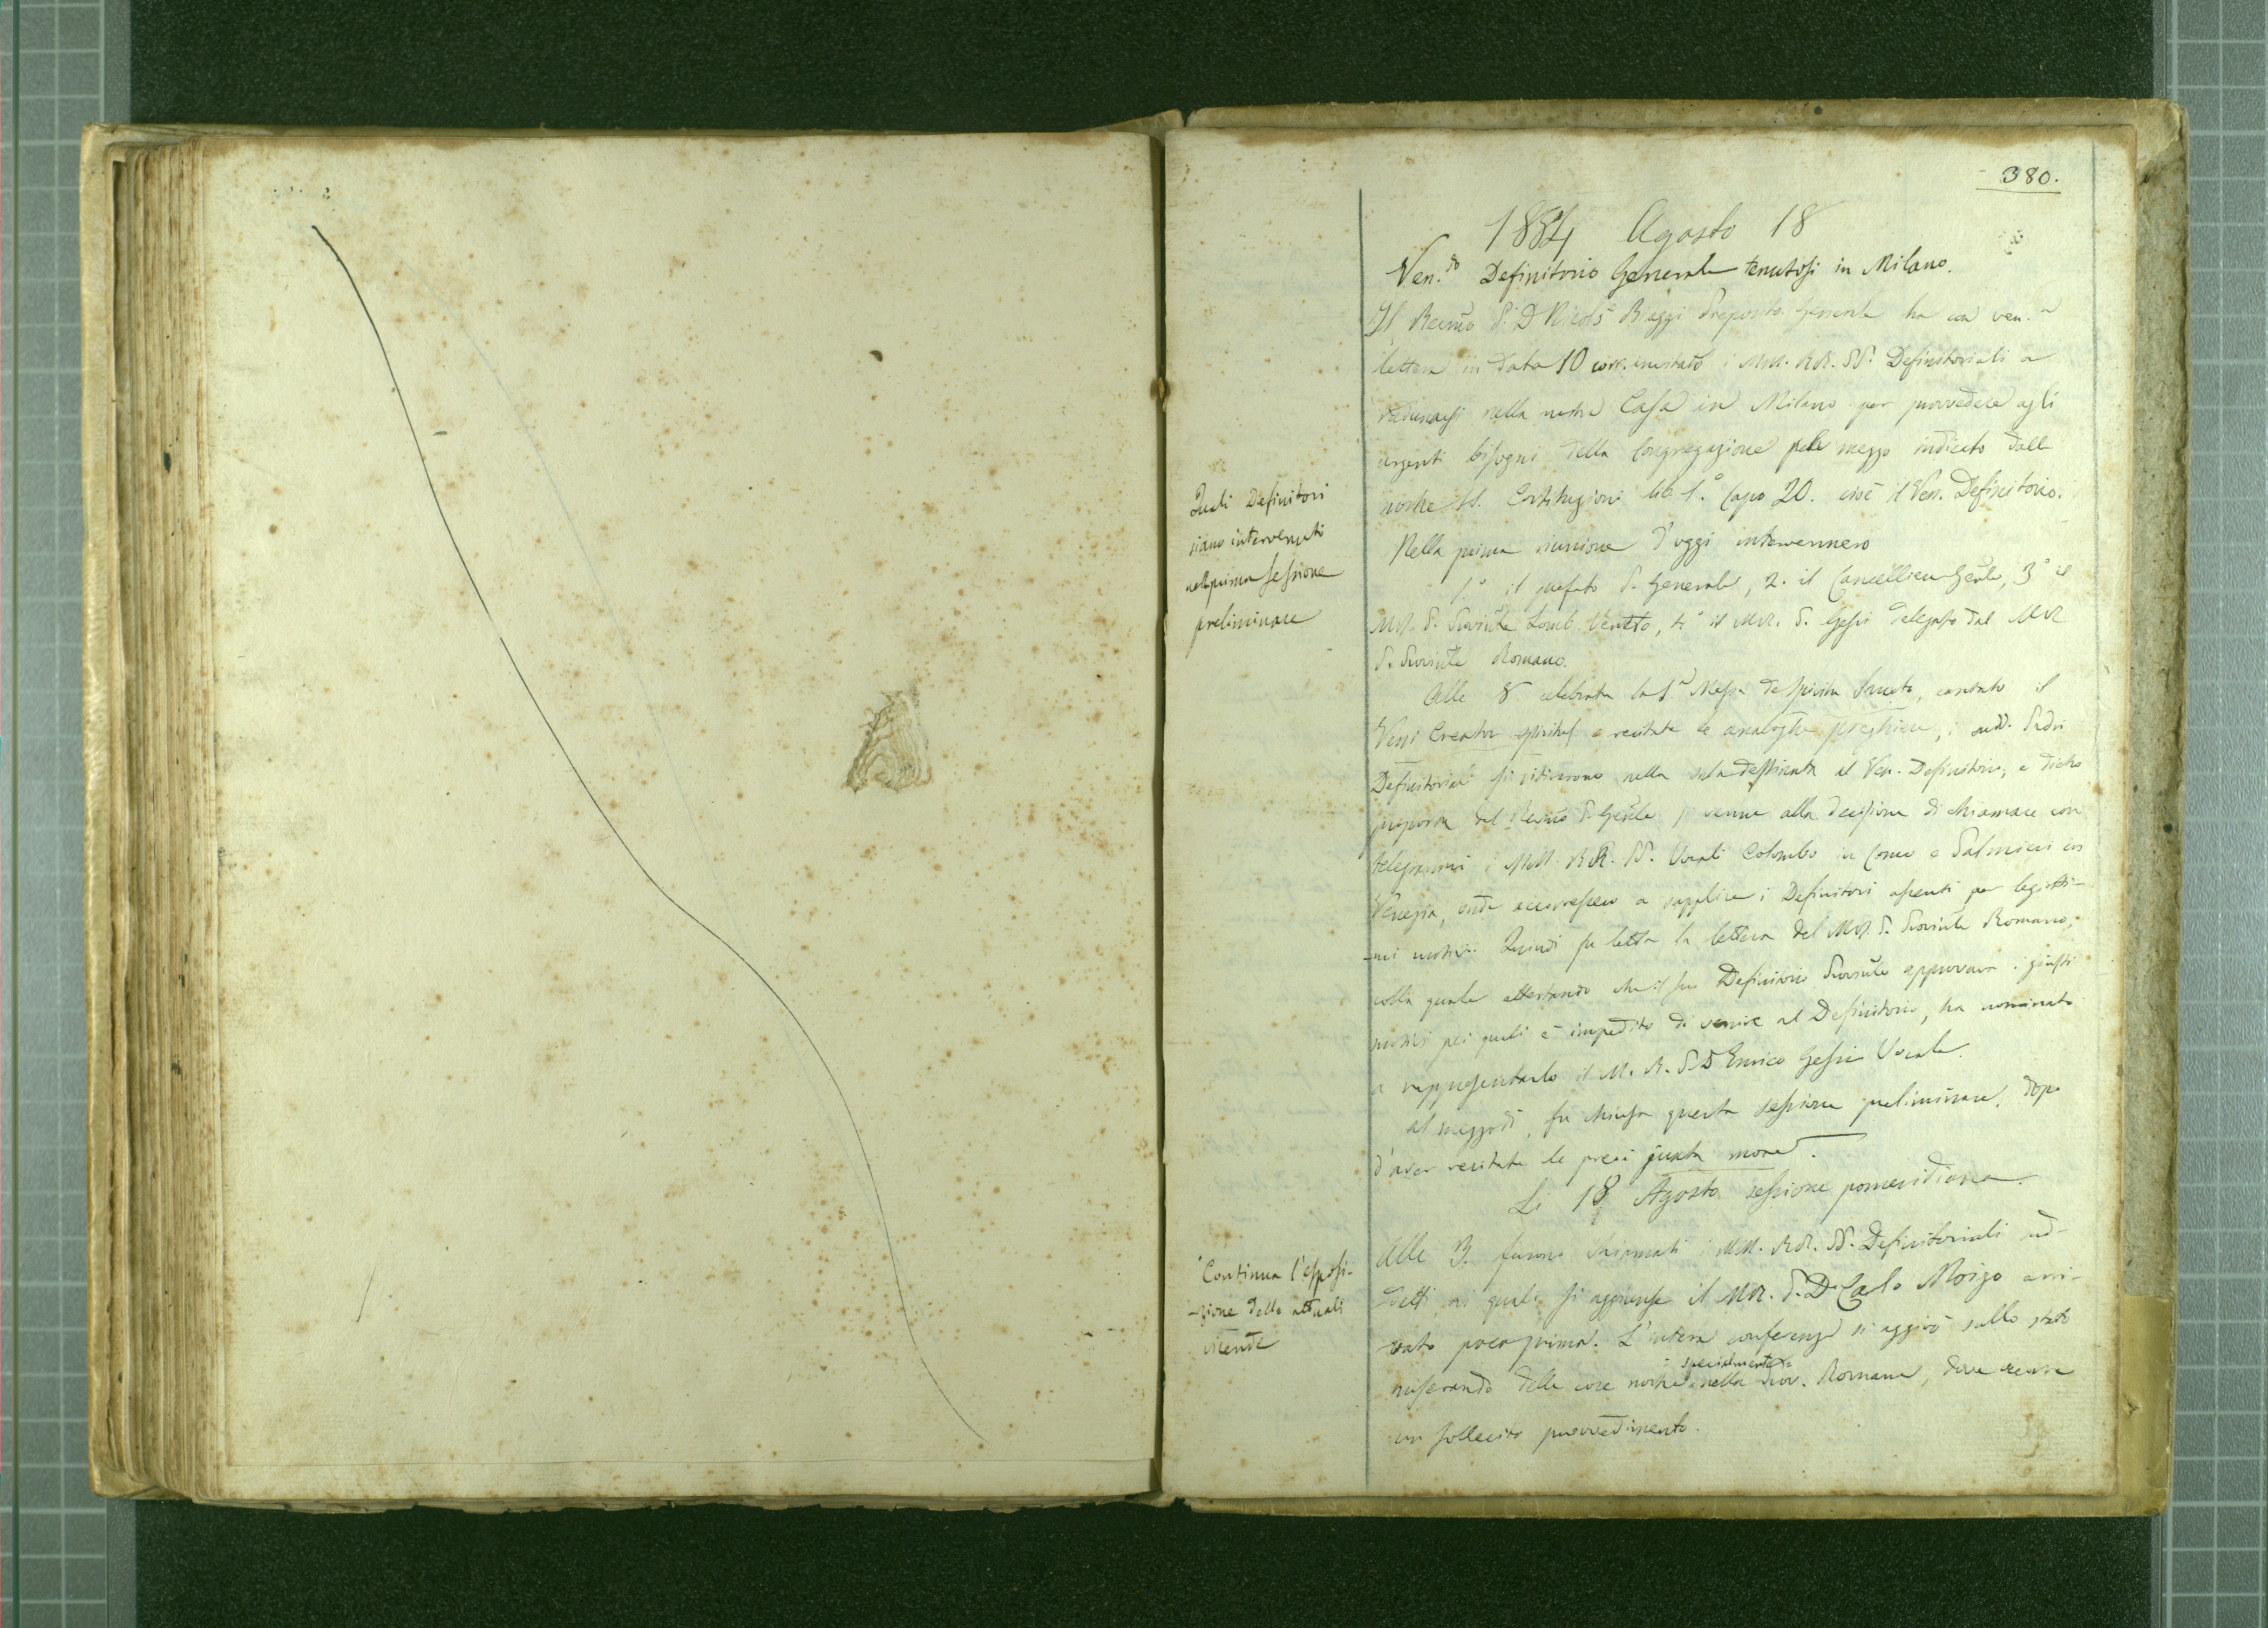 380.
1884 Agosto 18
Ven.do Definitorio Generale tenutosi in Milano.
Il Rec̃mo P. D Nicolò Biaggi Preposito Generale ha con ven.a
lettera in data 10 corr. invitato i MM. RR. PP. Definitoriali a
radunarsi nella nostra Casa in Milano per provvedere agli
urgenti bisogni della Congregazione pel mezzo indicato dalle
nostre SS. Costituzioni lib. 1.° Capo 20. cioè il Ven. Definitorio.
Nella prima riunione d'oggi intervennero
1.° il prefato P. Generale, 2. il Cancelliere Gẽnle, 3° il
MR. P. Provinc̃le Lomb. Veneto, 4° il MR. P. Gessi delegato dal MR
P. Provinc̃le Romano.
Alle 8 celebrata la S.a Messa de Spiritu Sancto, cantato il
Veni Creator Spiritus e recitate le analoghe preghiere, i sudd. Padri
Definitoriali si ritirarono nella sala destinata al Ven. Definitorio, e dietro
proposta del Reṽmo P. Gẽnle si venne alla decisione di chiamare con
telegrammi i MM. RR. PP. Vocali Colombo in Como e Palmieri in
Venezia, onde accorressero a supplire i Definitori assenti per legitti-
-mi motivi. Quindi fu letta la lettera del MR. P. Provinc̃le Romano,
colla quale attestando che il suo Definitorio Provinc̃le approvava i giusti
motivi pei quali è impedito di venire al Definitorio, ha nominato
a rappresentarlo il M. R. P. D Enrico Gessi Vocale.
Al mezzodì, fu chiusa questa sessione preliminare, dopo
d'aver recitate le preci juxta morem.
Li 18 Agosto sessione pomeridiana.
Alle 3. furono chiamati i MM. RR. PP. Definitoriali sud-
detti, ai quali si aggiunse il MR. P. D. Carlo Moizo arri-
vato poco prima. L'intera conferenza si aggirò sullo stato
miserando delle cose nostre specialmente nella Prov. Romana, dove recare
un sollecito provvedimento.
Quali Definitori
siano intervenuti
nella prima sessione
preliminare
Continua l'esposi-
-zione delle attuali
vicende